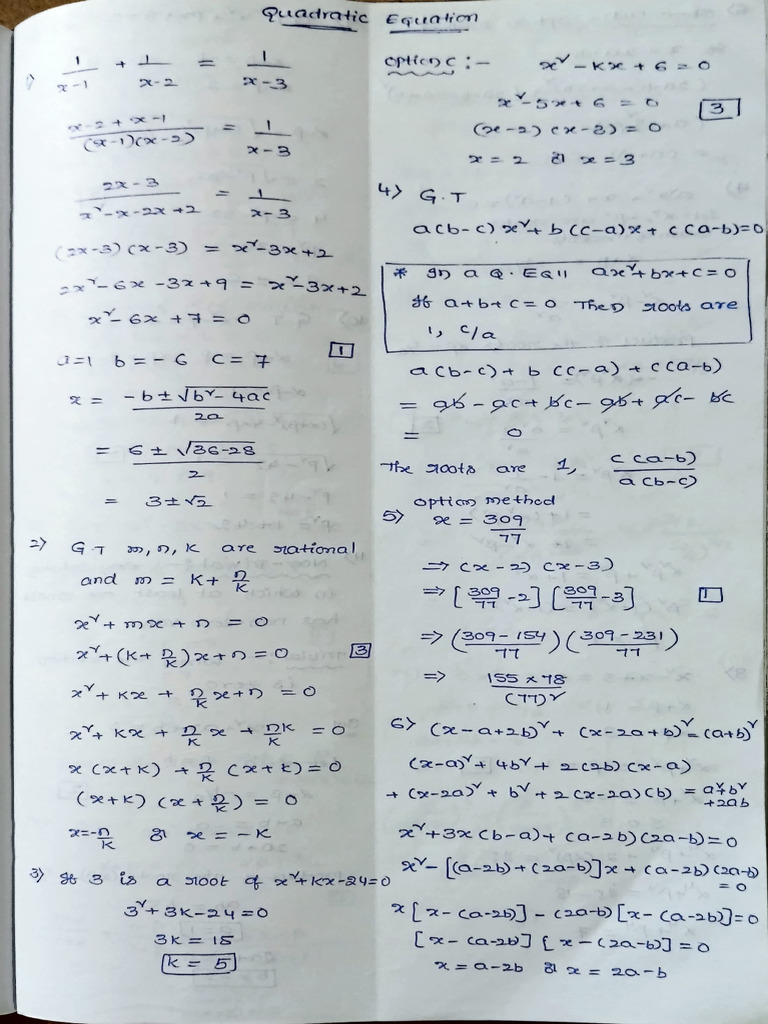 Quadratic Equation
1) 1/(x-1) + 1/(x-2) = 1/(x-3)
(x-2+x-1)/((x-1)(x-2)) = 1/(x-3)
(2x-3)/(x²-x-2x+2) = 1/(x-3)
(2x-3)(x-3) = x²-3x+2
2x²-6x-3x+9 = x²-3x+2
x²-6x+7=0
a=1 b=-6 c=7 [1]
x = (-b±√(b²-4ac))/2a
= (6±√(36-28))/2
= 3±√2
2) G.T m,n,k are rational
and m = k+n/k
x²+mx+n = 0
x²+(k+n/k)x+n=0 [3]
x²+kx+n/k x+n = 0
x²+kx+n/k x+nk/k = 0
x(x+k)+n/k(x+k)=0
(x+k)(x+n/k)=0
x=-n/k or x=-k
3) If 3 is a root of x²+kx-24=0
3²+3k-24=0
3k=15
k=5
option c:- x²-kx+6=0
x²-5x+6=0 [3]
(x-2)(x-3)=0
x=2 or x=3
4) G.T
a(b-c)x²+b(c-a)x+c(a-b)=0
* In a Q.EQ11 ax²+bx+c=0
If a+b+c=0 Then roots are
1, c/a
a(b-c)+b(c-a)+c(a-b)
= ab-ac+bc-ab+ac-bc
= 0
The roots are 1, c(a-b)/a(b-c)
option method
5) x = 309/77
⇒ (x-2)(x-3)
⇒ [309/77-2][309/77-3] [1]
⇒ ((309-154)/77)((309-231)/77)
⇒ (155×78)/(77)²
6) (x-a+2b)²+(x-2a+b)²=(a+b)²
(x-a)²+4b²+2(2b)(x-a)
+(x-2a)²+b²+2(x-2a)(b) = a²+b²
+2ab
x²+3x(b-a)+(a-2b)(2a-b)=0
x²-[(a-2b)+(2a-b)]x+(a-2b)(2a-b)
=0
x[x-(a-2b)]-(2a-b)[x-(a-2b)]=0
[x-(a-2b)][x-(2a-b)]=0
x=a-2b or x=2a-b